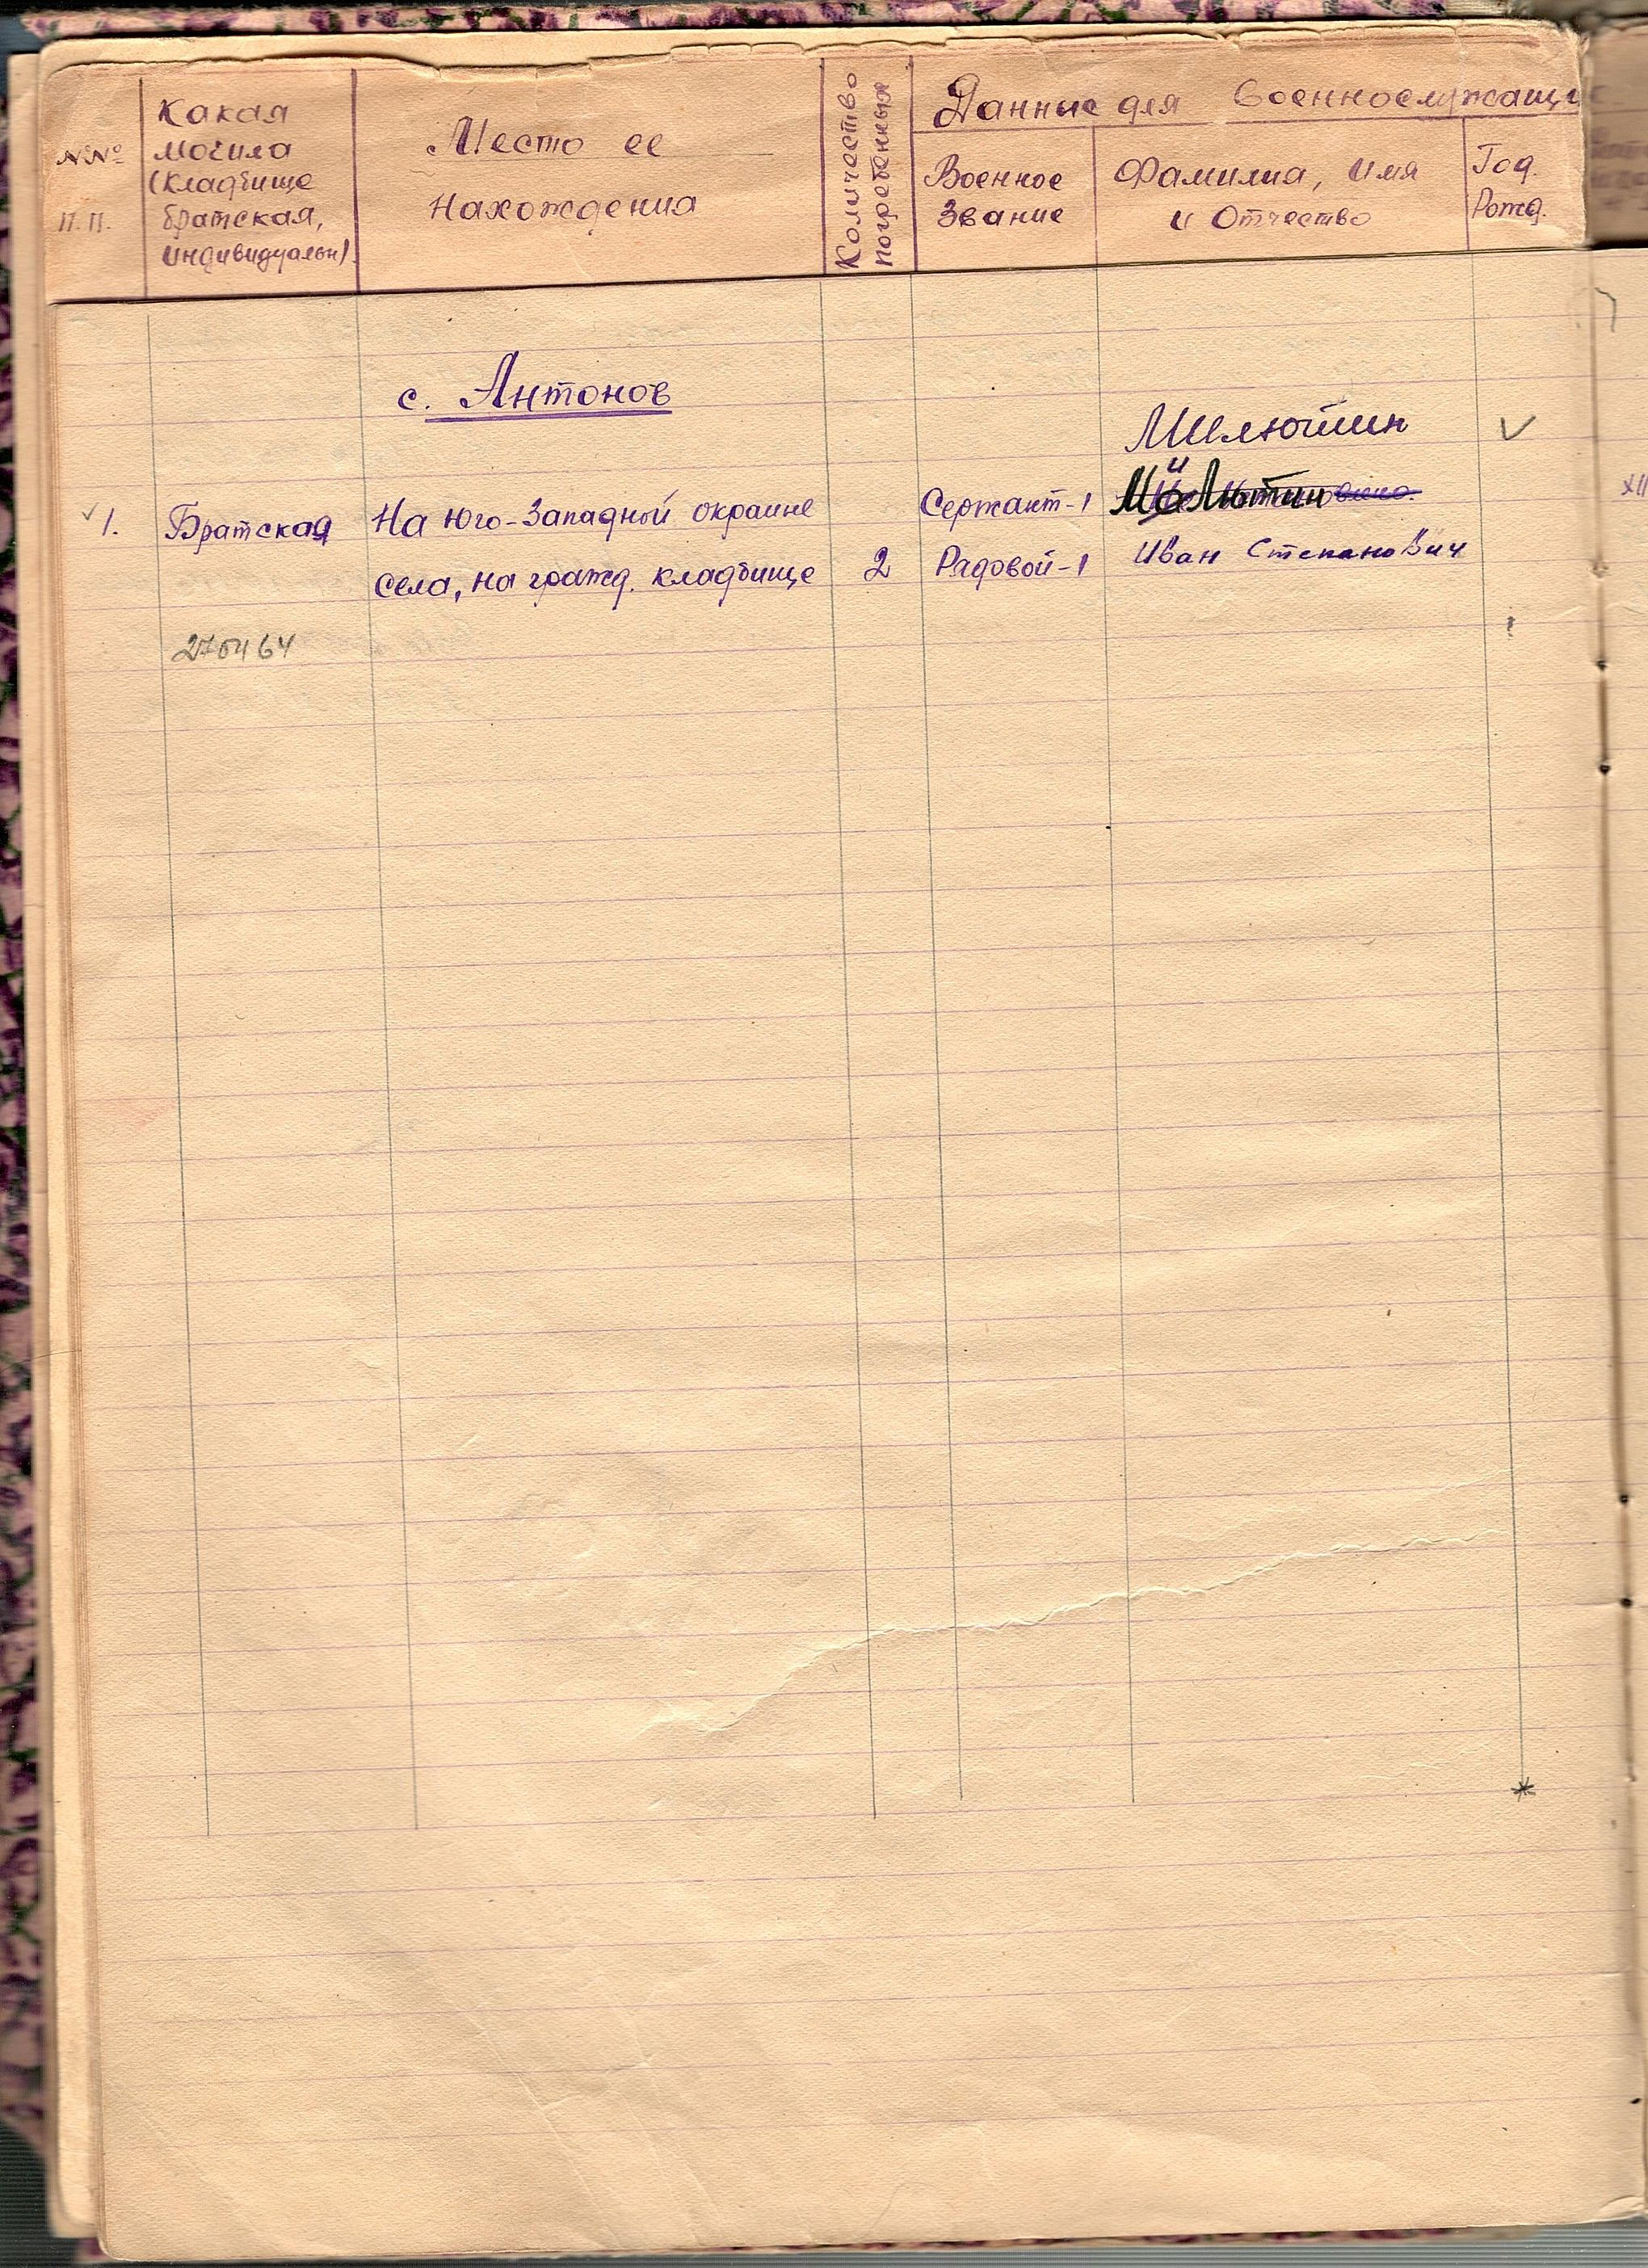 №№
п.п.
Какая
могила
(кладбище
братская,
индивидуальн).
Место ее
нахождения
Количество
погребенных
Данные для военнослужащи
Военное
звание
Фамилия, имя
и отчество
Год.
Рожд.
с. Антонов
Милютин
1. Братская На юго-западной окраине Сержант-1 Милютин
села, на гражд. кладбище 2 Рядовой-1 Иван Степанович
270464